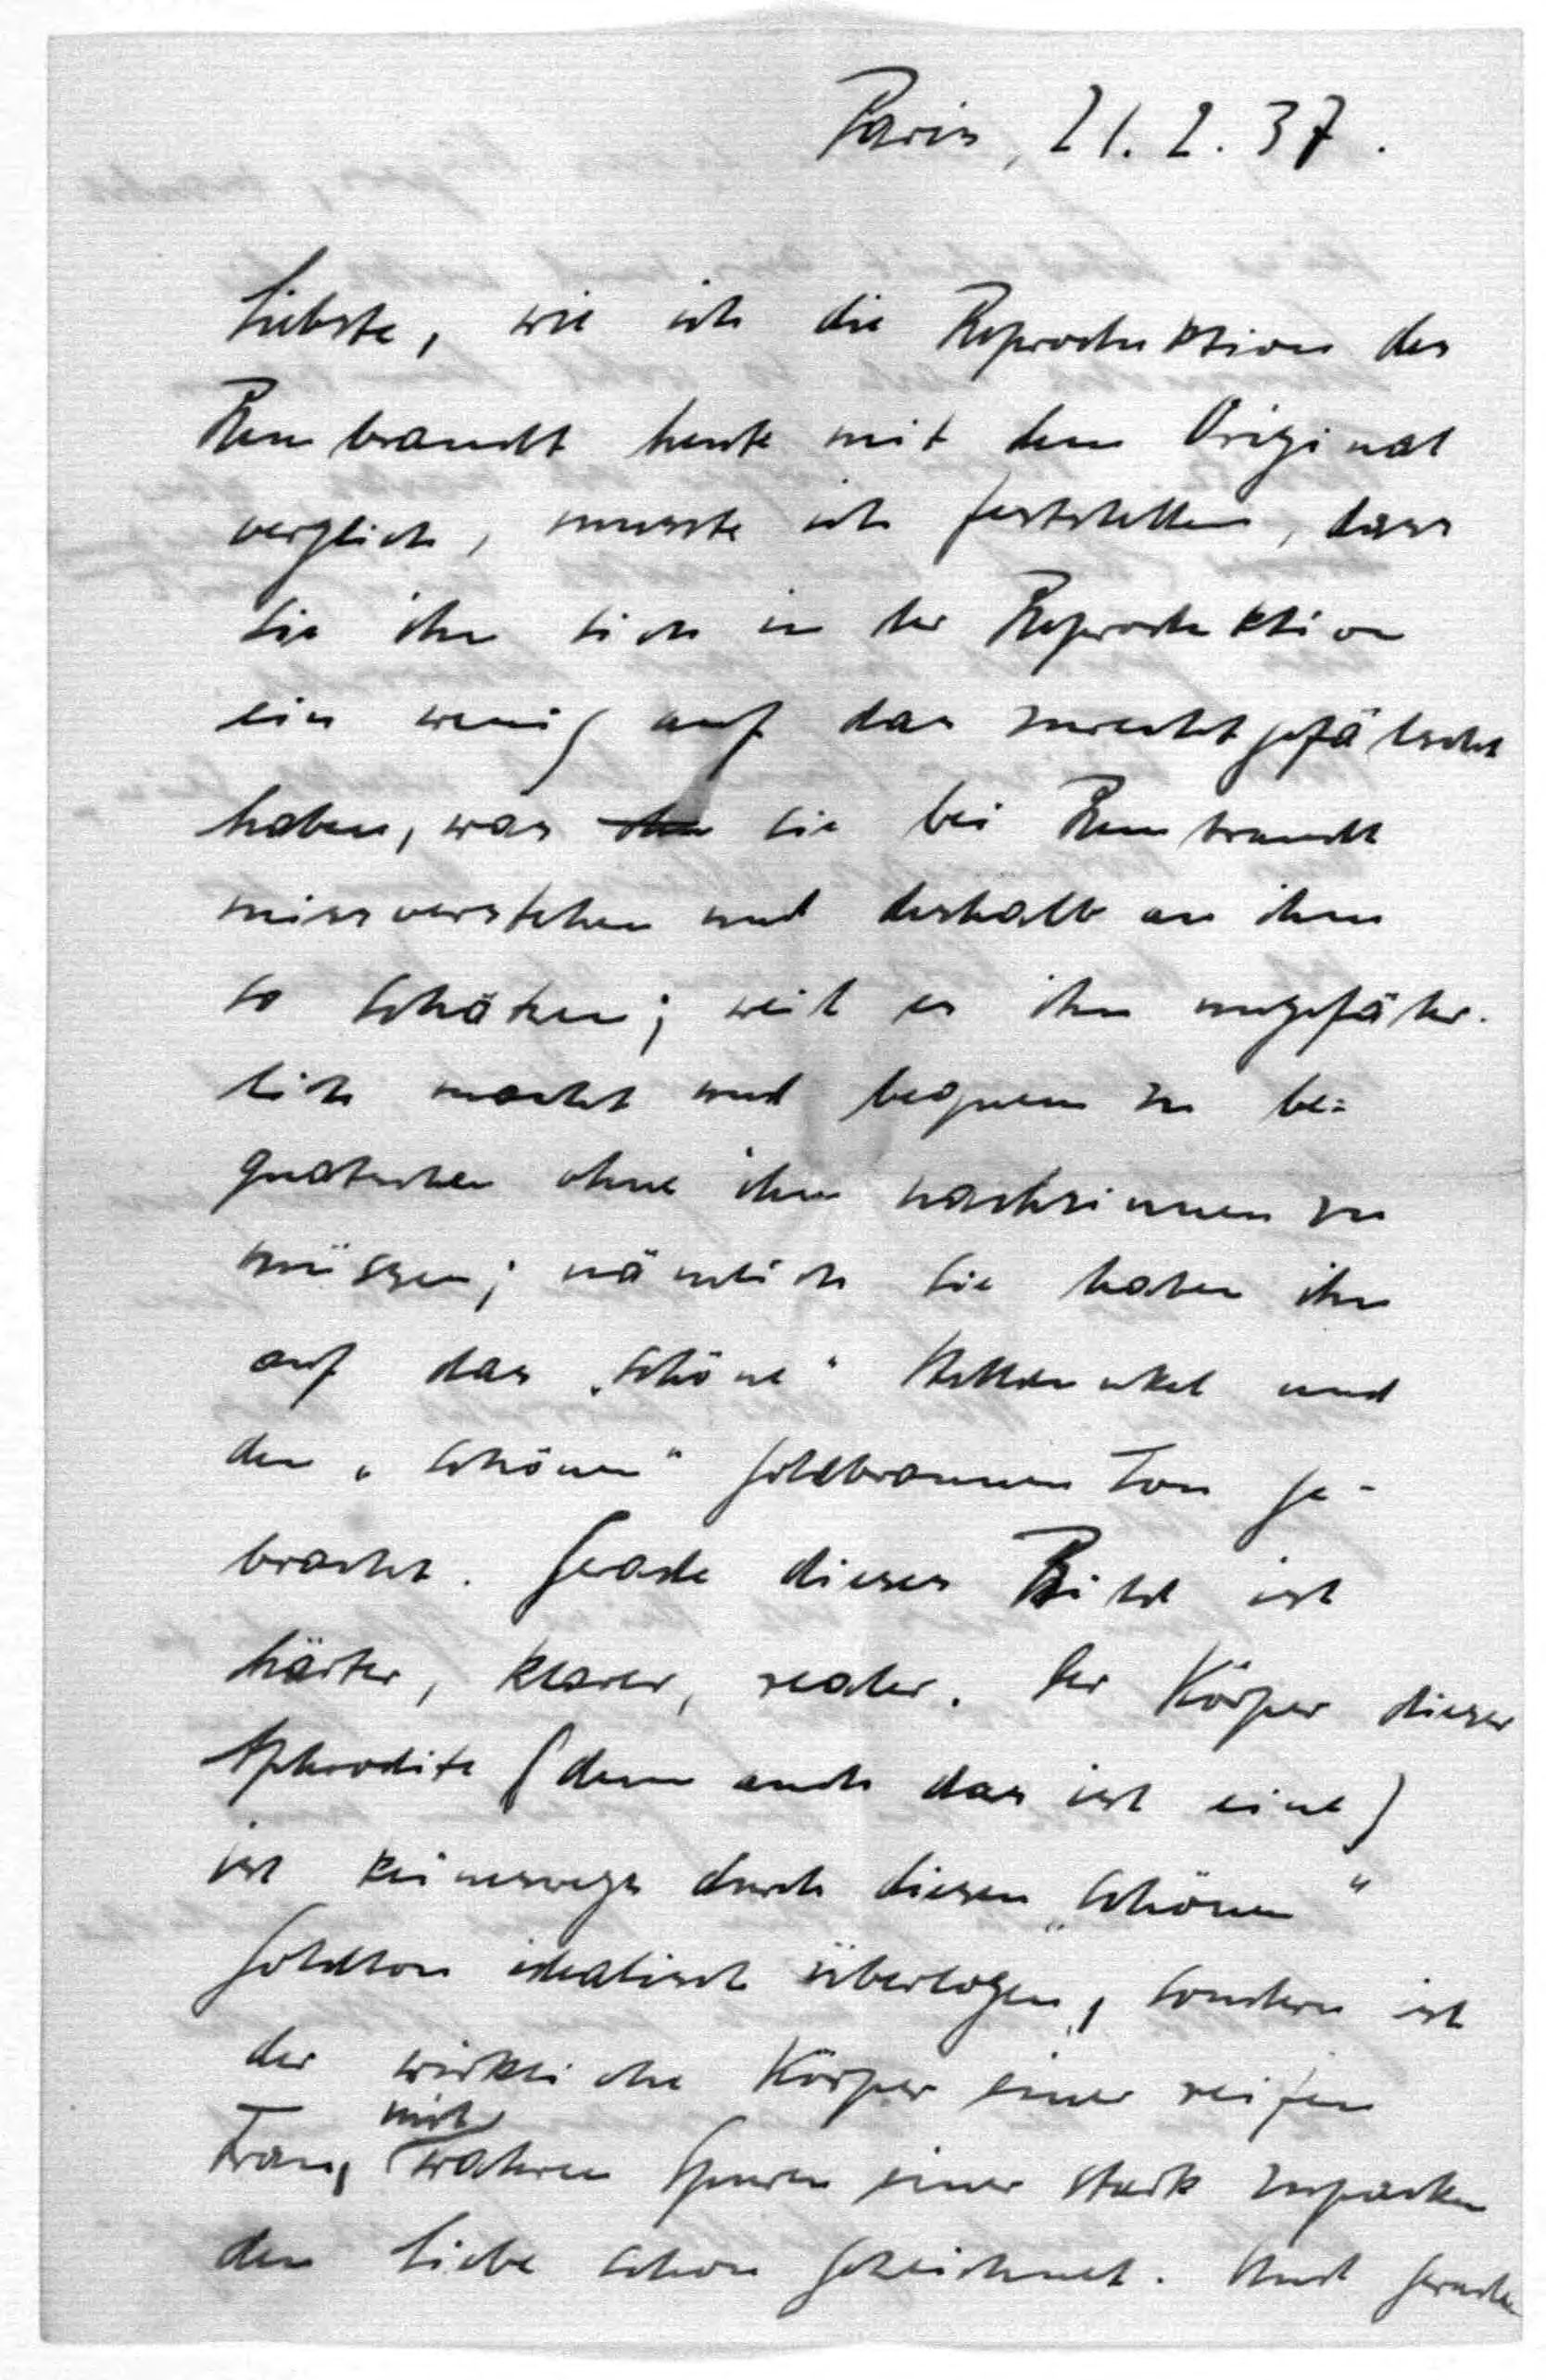 Paris, 21.2.37.
Liebste, wie ich die Reproduktion des
Rembrandt heute mit dem Original
verglich, musste ich feststellen, dass
sie ihn sich in der Reproduktion
ein wenig auf das zurechtgefälscht
haben, was ihn sie bei Rembrandt
missverstehen und deshalb an ihm
so schätzen; weil es ihn ungefähr-
lich macht und bequem zu be=
quatschen ohne ihm nachsinnen zu
müssen; nämlich sie haben ihn
auf das „schöne" Helldunkel und
den „schönen" goldbraunen Ton ge-
bracht. Gerade dieses Bild ist
härter, klarer, realer. Der Körper dieser
Aphrodite (denn auch das ist eine)
ist keineswegs durch diesen „schönen"
Goldton idealisch überlogen, sondern ist
der wirkliche Körper einer reifen
Frau, mit wahren Spuren einer stark zupacken
den Liebe schon gezeichnet. Und gerade